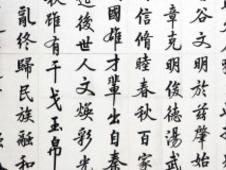 谷文明於兹肇始
章克明俊德湯武
信脩睦春秋百家
國雄才輩出自秦
後世人文煥彩光
雖有干戈玉帛
亂終歸民族融和